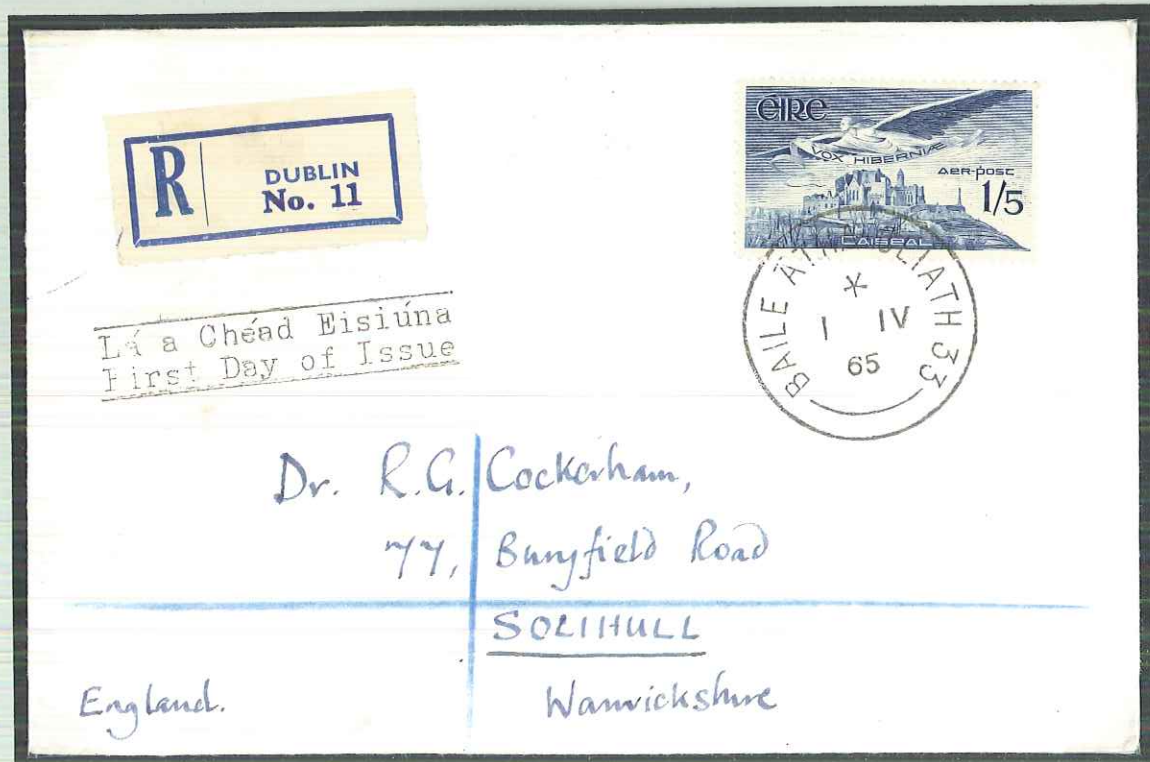 R DUBLIN
No. 11
ÉIRE
VOX HIBERNIÆ
AER-PHOST
1/5
CAISEAL
BAILE ÁTHA CLIATH 33
1 IV
65
Lá a Chéad Eisiúna
First Day of Issue
Dr. R.G. Cockerham,
77, Buryfield Road
SOLIHULL
Warwickshire
England.